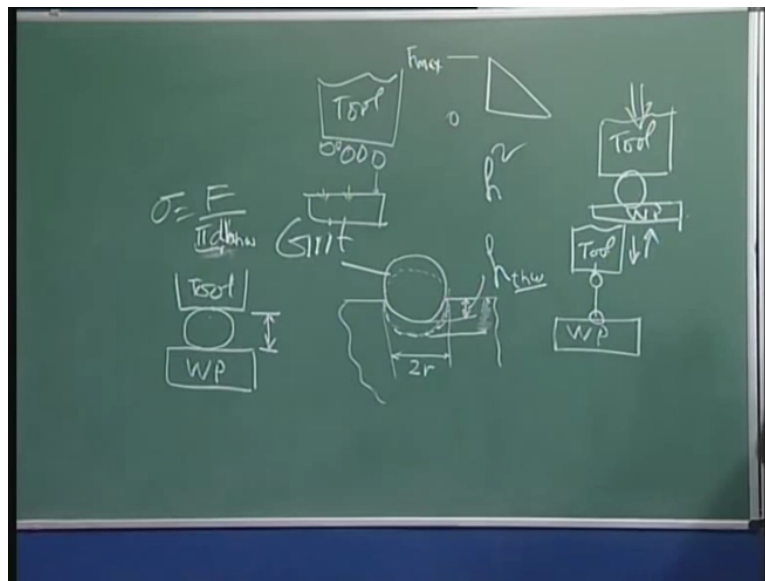 Fmax
Tool
0
h²
Tool
WP
σ = F
πdhhw
Grit
hthw
Tool
Tool
WP
WP
2r